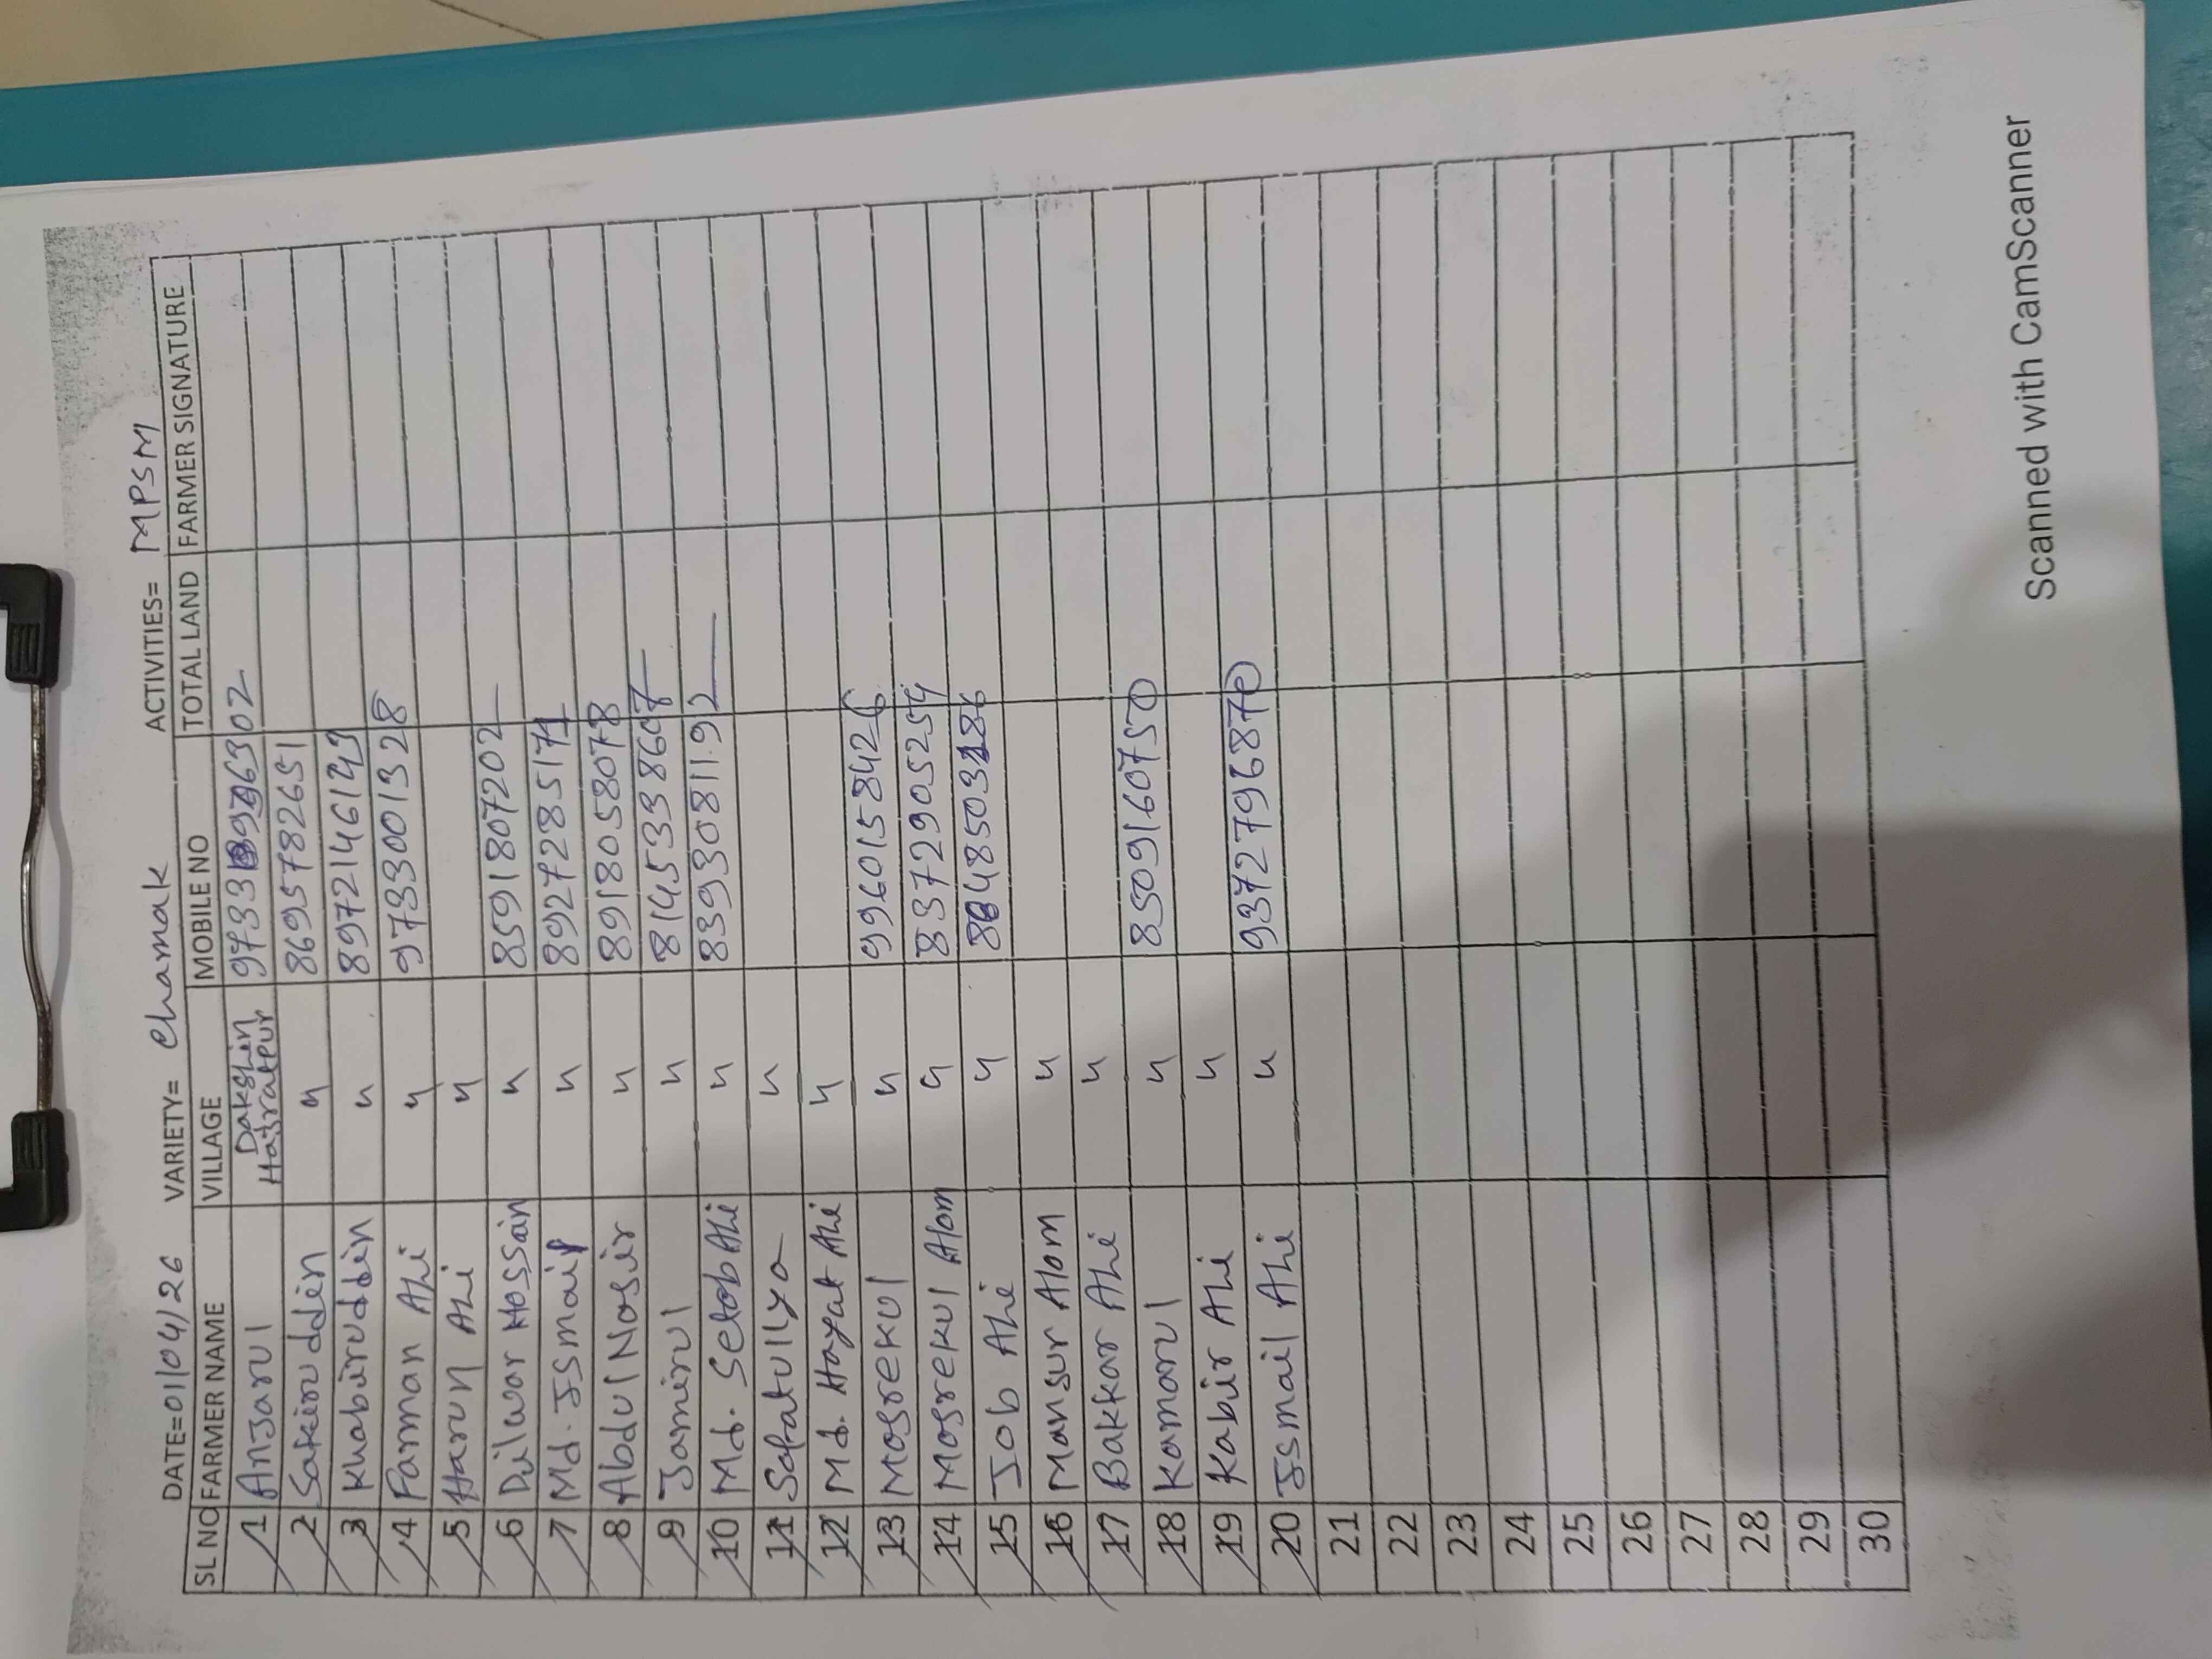 DATE=01/04/26 VARIETY= Chamak ACTIVITIES= MPSM
SL NO FARMER NAME VILLAGE MOBILE NO TOTAL LAND FARMER SIGNATURE
1 Anjarul Dakshin Hasratpur
2 Sakiruddin " 8695782651
3 Khabiruddin " 8972146143
4 Farman Ali " 9733001328
5 Harun Ali "
6 Dilwar Hossain " 8591807202
7 Md. Ismail " 8927285171
8 Abdul Nosir " 8918058078
9 Jamirul " 8145338607
10 Md. Setob Ali " 8393081192
11 Safatullya "
12 Md. Hayat Ali "
13 Mosrekul " 9960158426
14 Mosrekul Alom " 8372905254
15 Job Ali "
16 Mansur Alom "
17 Bakkar Ali "
18 Kamarul " 8509160750
19 Kabir Ali "
20 Ismail Ali " 9372796870
21
22
23
24
25
26
27
28
29
30
Scanned with CamScanner